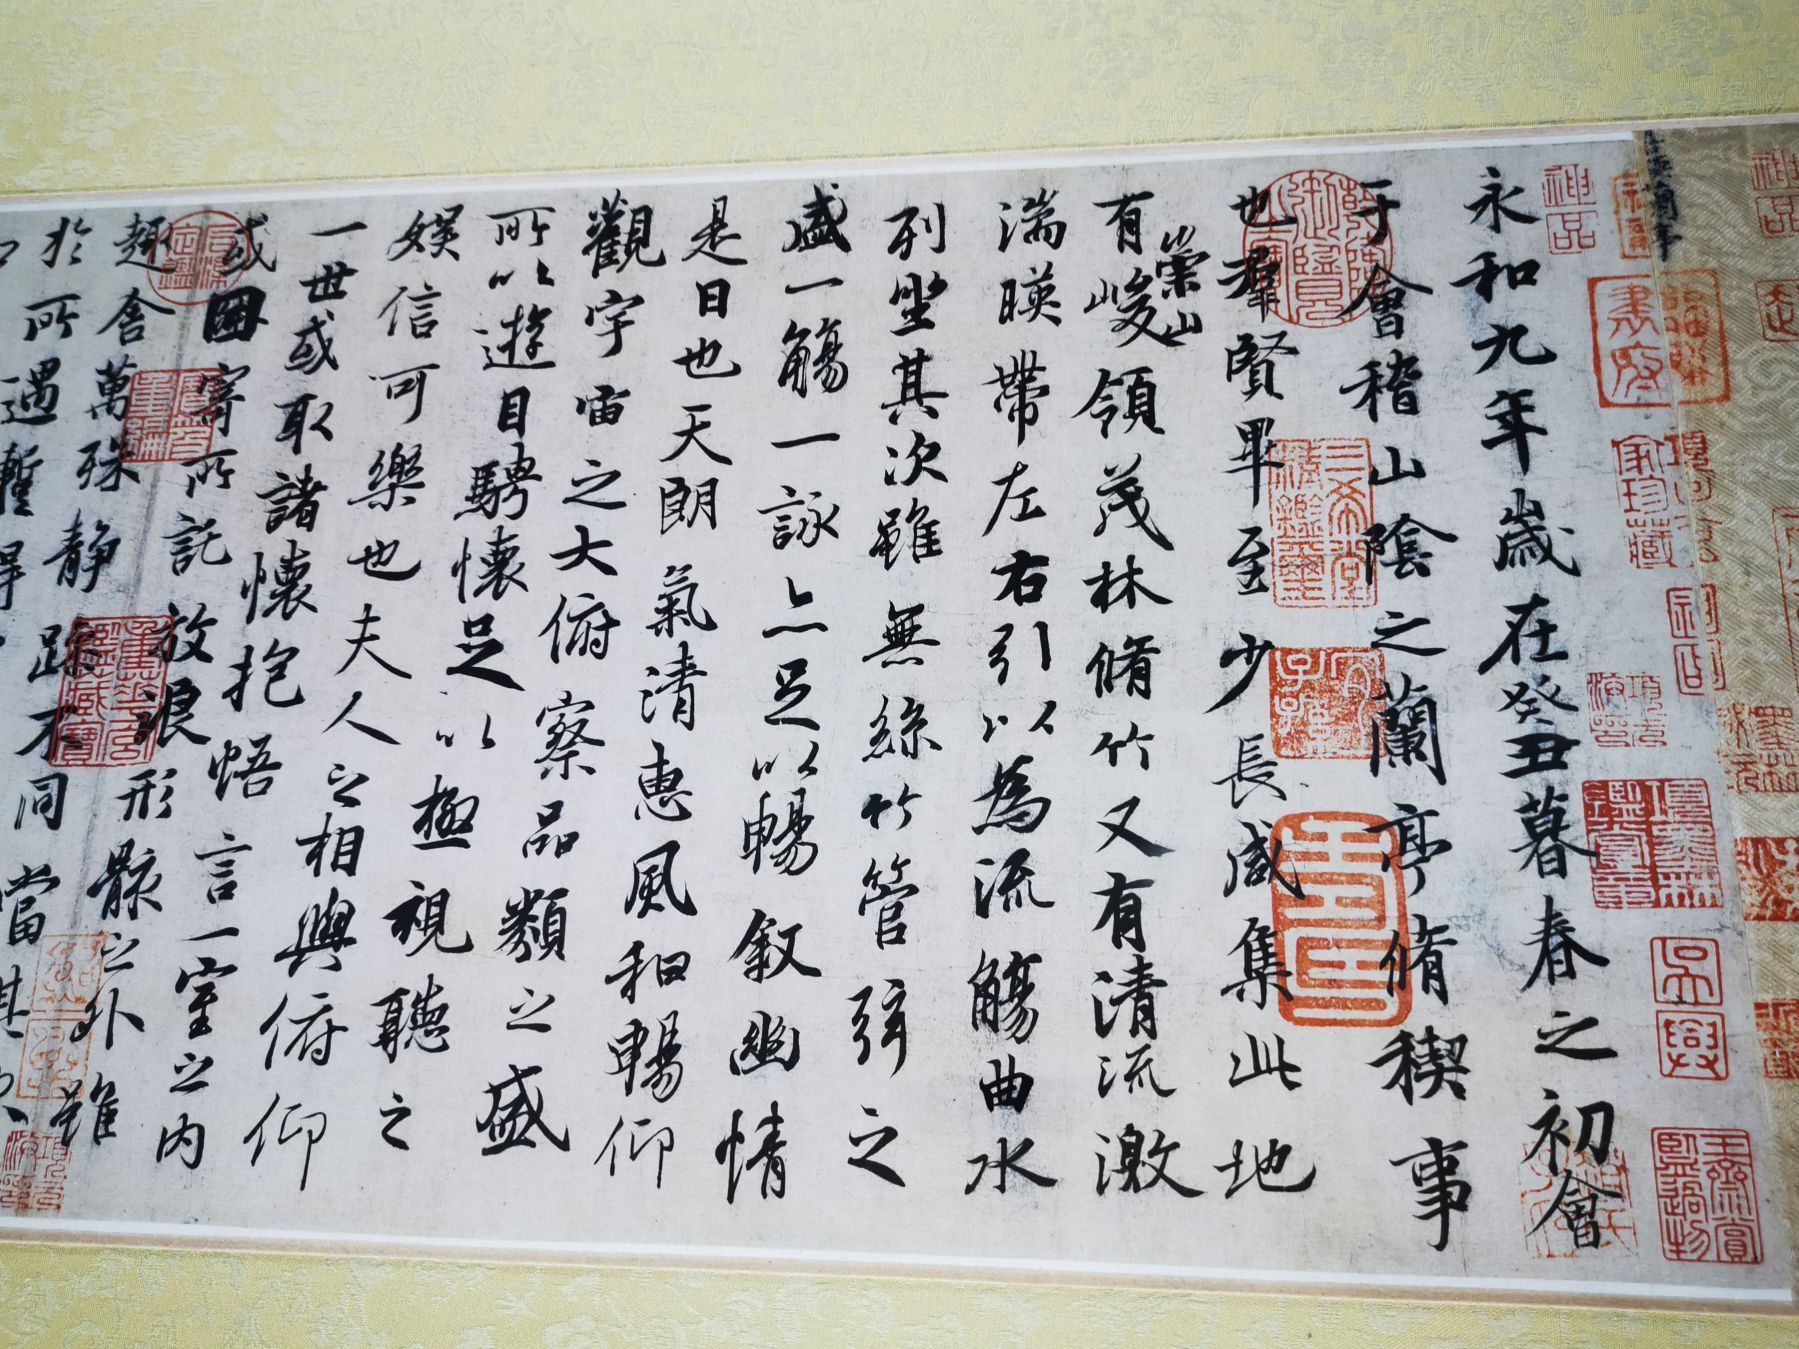 永和九年歲在癸丑暮春之初會
于會稽山陰之蘭亭脩稧事
也羣賢畢至少長咸集此地
有峻領茂林脩竹又有清流激
崇山
湍暎帶左右引以為流觴曲水
列坐其次雖無絲竹管弦之
盛一觴一詠亦足以暢敘幽情
是日也天朗氣清惠風和暢仰
觀宇宙之大俯察品類之盛
所以遊目騁懷足以極視聽之
娛信可樂也夫人之相與俯仰
一世或取諸懷抱悟言一室之內
或因寄所託放浪形骸之外雖
趣舍萬殊靜躁不同當其
於所遇蹔得
神品
書府
家珍藏
三希堂精鑑璽
乾隆御覽之寶
宜子孫
項墨林鑑賞章